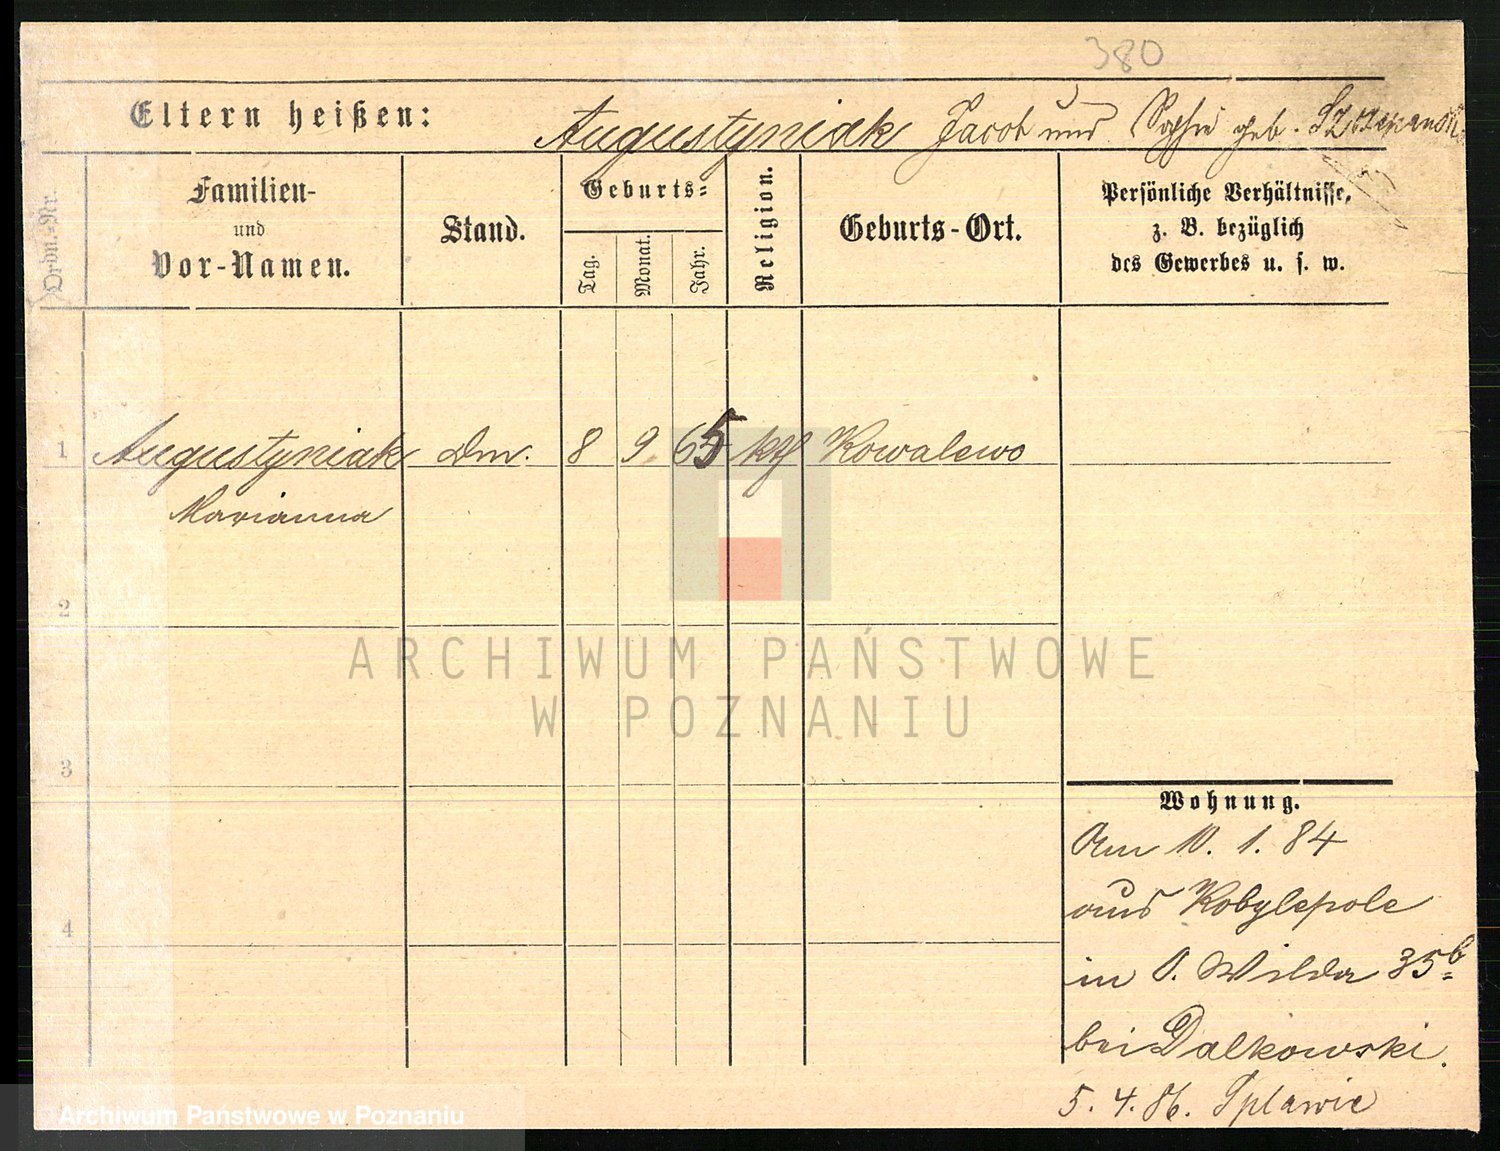 380
Eltern heißen: Augustyniak Jacob und Sophie geb. Szczepanski
Ordn.-Nr.
Familien-
und
Vor-Namen.
Stand.
Geburts-
Tag.
Monat.
Jahr.
Religion.
Geburts-Ort.
Persönliche Verhältnisse,
z. B. bezüglich
des Gewerbes u. s. w.
1 Augustyniak Dm. 8 9 65 kth Kowalewo
Marianna
2
ARCHIWUM PAŃSTWOWE
W POZNANIU
3
Wohnung.
Am 10. 1. 84
aus Kobylepole
4
in O. Wilda 35b
bei Dalkowski.
5. 4. 86. Splawie
Archiwum Państwowe w Poznaniu